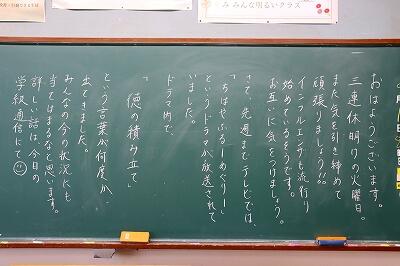 み みんな明るいクラス
おはようございます。
三連休明けの火曜日。
また気を引き締めて
頑張りましょう!!
インフルエンザも流行り
始めているそうです。
お互いに気をつけましょう。
さて、先週までテレビでは、
「ちはやふるーめぐりー」
というドラマが放送されて
いました。
ドラマ内で、
「徳の積み立て」
という言葉が何度か
出てきました。
みんなの今の状況にも
当てはまるなと思います。
詳しい話は、今日の
学級通信にて☺